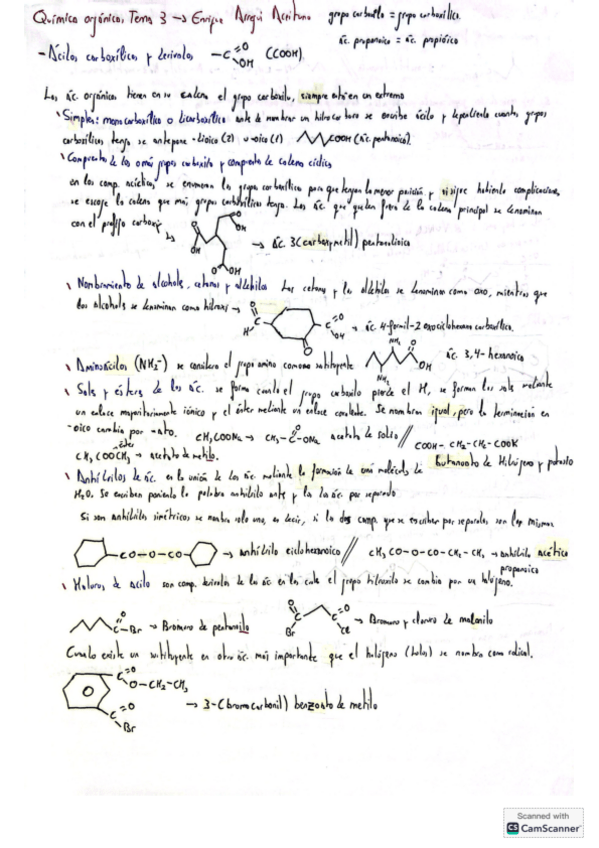 Química orgánica, Tema 3 → Enrique grupo carboxilo = grupo carboxílico.
ác. propanoico = ác. propiónico
- Ácidos carboxílicos y derivados -C =O OH (COOH).
Los ác. orgánicos tienen en su cadena el grupo carboxilo, siempre está en un extremo
Simples: monocarboxílico o dicarboxílico ante de nombrar un hidrocarburo se escribe ácido y dependiendo cuantos grupos
carboxílicos tenga se antepone -dioico (2) u -oico (1) COOH (ác. pentanoico).
Compuesto de 3 o más grupos carboxilo y compuesto de cadena cíclica
en los comp. acíclicos, se enumeran los grupos carboxílicos para que tengan la menor posición y
se escoge la cadena que más grupos carboxílicos tenga. Los ác. que quedan fuera de la cadena principal se denominan
con el prefijo carboxi
O OH
O OH
O OH
→ ác. 3(carboxymetil) pentanodioico
Nombramiento de alcohols, cetonas y aldehidos Las cetonas y los aldehidos se denominan como oxo, mientras que
los alcohols se denominan como hidroxi →
O C H C =O OH O → ác. 4-formil-2 oxociclohexano carboxílico.
Aminoácidos (NH2-) se considera el grupo amino como un sustituyente NH2 NH2 O OH ác. 3,4- hexanoico
Sals y ésters de los ác. se forma cuando el grupo carboxilo pierde el H, se forman las sals mediante
un enlace mayoritariamente iónico y el éster mediante un enlace covalente. Se nombran igual, pero la terminación en
-oico cambia por -ato. CH3COONa → CH3-C-ONa acetato de sodio // COOH- CH2-CH2-COOK
éster
CH3COOCH3 → acetato de metilo. butanoato de hidrógeno y potasio
Anhídridos de ác. en la unión de dos ác. mediante la formación de una molécula de
H2O. Se escriben poniendo la palabra anhídrido ante y los 2 ác. por separado
Si son anhídridos simétricos se nombra solo uno, es decir, si los dos comp. que se escriben por separados son los mismos
-CO-O-CO- → anhídrido ciclohexanoico // CH3 CO-O-CO-CH2-CH3 → anhídrido acético
propanoico
Haluros de acilo son comp. derivados de los ác. en los cuales el grupo hidroxilo se cambia por un halógeno.
C =O Br → Bromuro de pentanoilo O C Br C =O Cl → Bromuro y cloruro de malonilo
Cuando existe un sustituyente en otro ác. más importante que el halógeno (haluro) se nombra como radical.
C =O O-CH2-CH3
C =O Br
→ 3-(bromocarbonil) benzoato de metilo
Scanned with
CS CamScanner